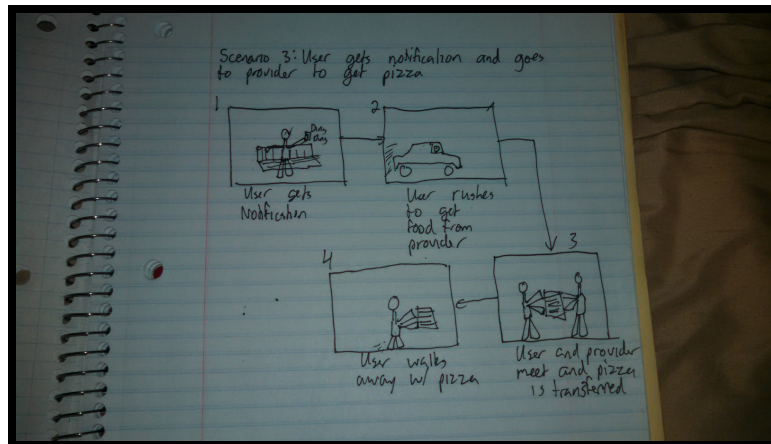 Scenario 3: User gets notification and goes
to provider to get pizza
1
Ding
Ding
User gets
Notification
2
User rushes
to get
food from
provider
3
User and provider
meet and pizza
is transferred
4
User walks
away w/ pizza